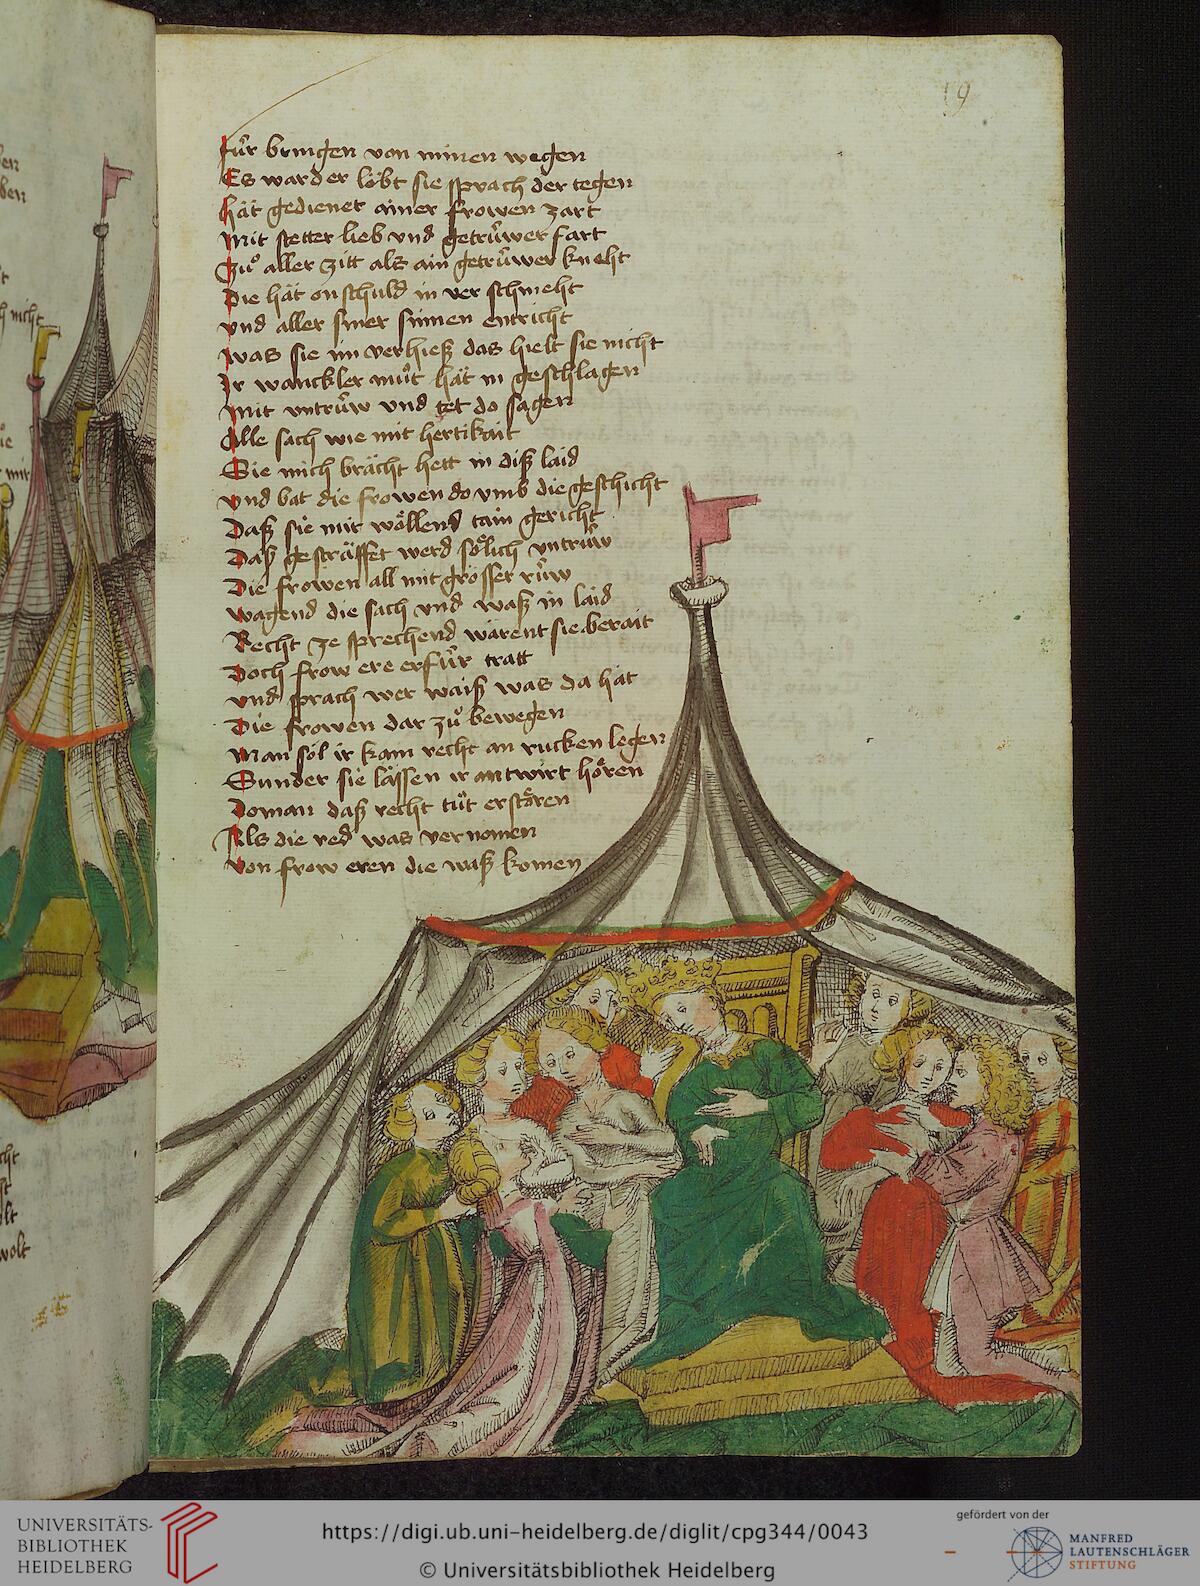 19
Fu̍r bringen von minen wegen
Es ward er lobt sie sprach der tegen
hät gedienet ainer frowen zart
Mit stetter lieb und getru̍wer fart
Zuͦ aller zitt als ain getru̍wer kneht
Die hät onschuld in ver schmeht
und aller siner sinnen entricht
was sie im verhieß das hielt sie nicht
Ir wanckler muͦt hät in geschlagen
Mit untru̍w und tet do sagen
Alle sach wie mit hertikait
Sie mich brächt hett in diß laid
und bat die frowen do umb die geschicht
Daß sie mir wo̍llend tain gericht
Daß gesträffet werd so̍lich untru̍w
Die frowen all mit grosser ru̍w
wagend die sach und waß in laid
Recht ze sprechend wärent sie berait
Doch frow ere erfu̍r tratt
und sprach wer waiß was da hät
Die frowen dar zuͦ bewegen
Man sol ir kain recht an rucken legen
Sunder sie lässen ir antwirt ho̍ren
Do man daß recht tu̍t ersta̍ren
Als die red was vernomen
Von frow eren die waß komen
nicht
mit
wolt
UNIVERSITÄTS-
BIBLIOTHEK
HEIDELBERG
https://digi.ub.uni-heidelberg.de/diglit/cpg344/0043
© Universitätsbibliothek Heidelberg
gefördert von der
MANFRED
LAUTENSCHLÄGER
STIFTUNG